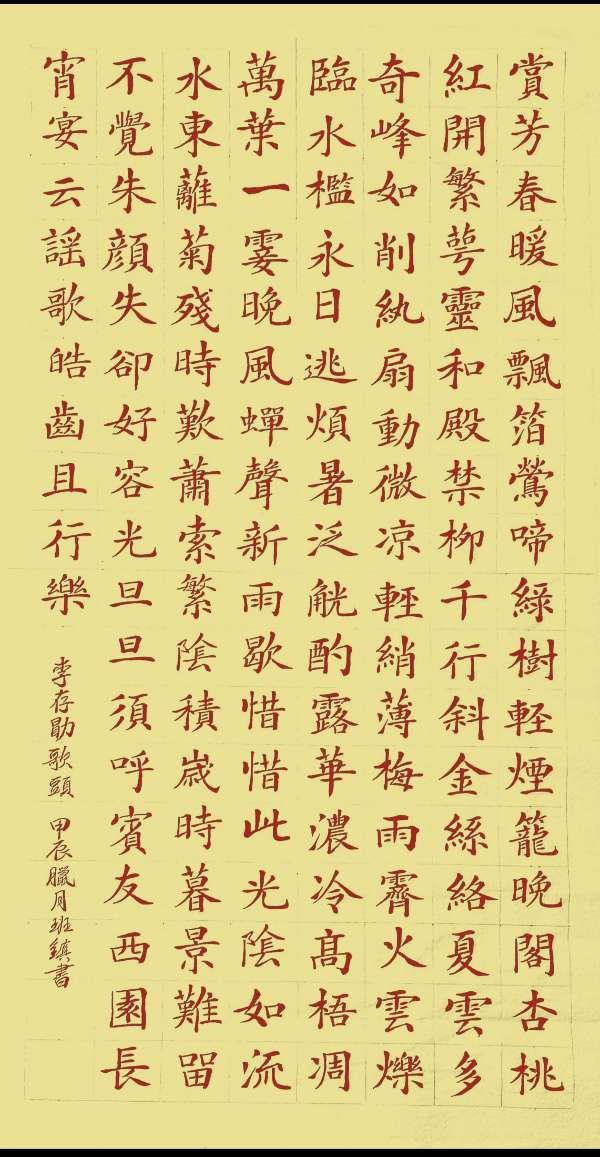 賞芳春暖風飄箔鶯啼綠樹輕煙籠晚閣杏桃
紅開繁萼靈和殿禁柳千行斜金絲絡夏雲多
奇峰如削紈扇動微凉輕綃薄梅雨霽火雲爍
臨水檻永日逃煩暑泛觥酌露華濃冷髙梧凋
萬葉一霎晚風蟬聲新雨歇惜惜此光陰如流
水東蘺菊殘時歎蕭索繁陰積歲時暮景難留
不覺朱顔失卻好容光旦旦須呼賓友西園長
宵宴云謡歌皓齒且行樂
李存勖歌頭 甲辰臘月班鎮書